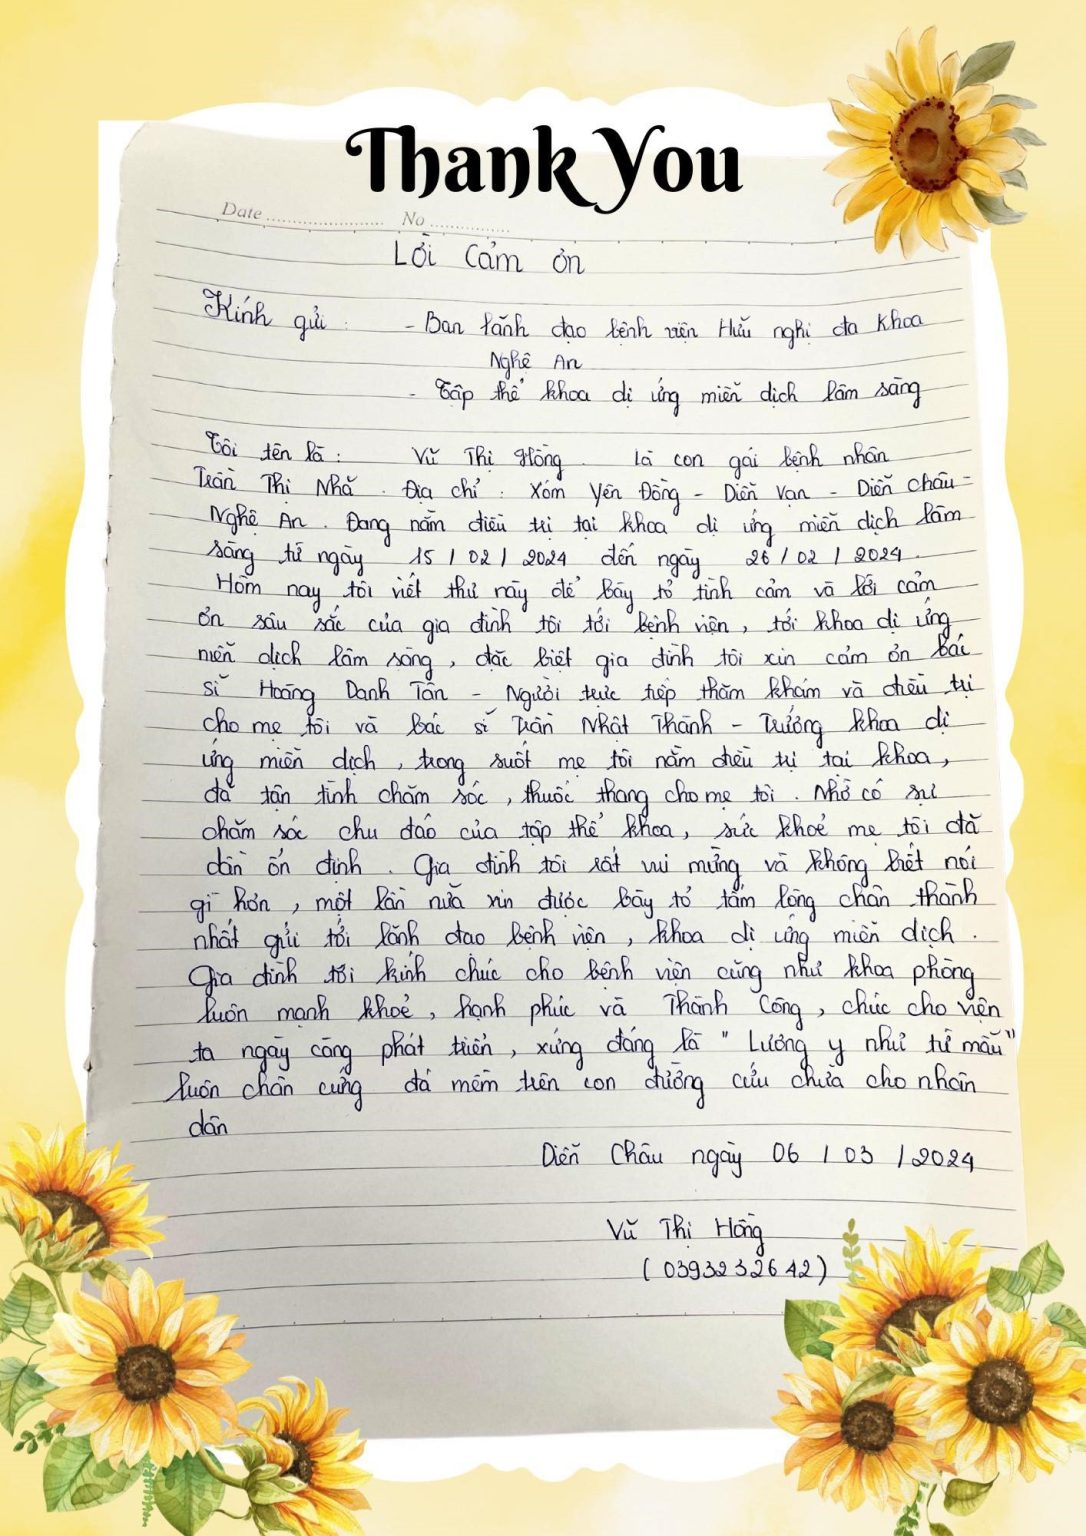 Thank You
Date ........................ No ................
Lời Cảm ơn
Kính gửi : - Ban lãnh đạo bệnh viện Hữu nghị đa Khoa
Nghệ An
- Tập thể khoa dị ứng miễn dịch lâm sàng
Tôi tên là : Vũ Thị Hồng . Là con gái bệnh nhân
Trần Thị Nhã . Địa chỉ : Xóm Yên Đồng - Diễn Vạn - Diễn Châu -
Nghệ An . Đang nằm điều trị tại khoa dị ứng miễn dịch lâm
sàng từ ngày 15 / 02 / 2024 đến ngày 26 / 02 / 2024 .
Hôm nay tôi viết thư này để bày tỏ tình cảm và lời cảm
ơn sâu sắc của gia đình tôi tới bệnh viện , tới khoa dị ứng
miễn dịch lâm sàng , đặc biệt gia đình tôi xin cảm ơn bác
sĩ Hoàng Danh Tân - Người trực tiếp thăm khám và điều trị
cho mẹ tôi và bác sĩ Trần Nhật Thành - Trưởng khoa dị
ứng miễn dịch , trong suốt mẹ tôi nằm điều trị tại khoa ,
đã tận tình chăm sóc , thuốc thang cho mẹ tôi . Nhờ có sự
chăm sóc chu đáo của tập thể khoa , sức khoẻ mẹ tôi đã
dần ổn định . Gia đình tôi rất vui mừng và không biết nói
gì hơn , một lần nữa xin được bày tỏ tấm lòng chân thành
nhất gửi tới lãnh đạo bệnh viện , khoa dị ứng miễn dịch .
Gia đình tôi kính chúc cho bệnh viện cũng như khoa phòng
luôn mạnh khoẻ , hạnh phúc và Thành Công , chúc cho viện
ta ngày càng phát triển , xứng đáng là " Lương y như từ mẫu "
luôn chân cứng đá mềm trên con đường cứu chữa cho nhân
dân
Diễn Châu ngày 06 / 03 / 2024
Vũ Thị Hồng
( 0393232642 )